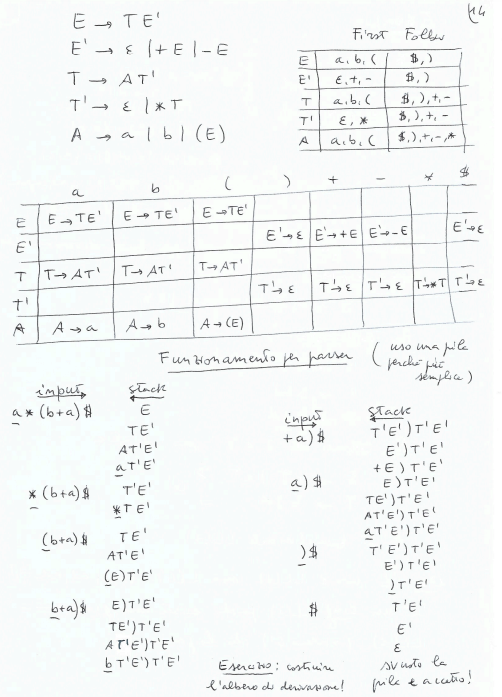 14
E → TE'
E' → ε | +E | -E
T → AT'
T' → ε | *T
A → a | b | (E)
First Follow
E a,b,( $,)
E' ε,+,- $,)
T a,b,( $,),+,-
T' ε,* $,),+,-
A a,b,( $,),+,-,*
a b ( ) + - * $
E E→TE' E→TE' E→TE'
E' E'→ε E'→+E E'→-E E'→ε
T T→AT' T→AT' T→AT'
T' T'→ε T'→ε T'→ε T'→*T T'→ε
A A→a A→b A→(E)
Funzionamento per parser (uso una pila
perché più
semplice)
input stack
a*(b+a)$ E
TE'
AT'E'
aT'E'
*(b+a)$ T'E'
*TE'
(b+a)$ TE'
AT'E'
(E)T'E'
b+a)$ E)T'E'
TE')T'E'
AT'E')T'E'
bT'E')T'E'
input stack
+a)$ T'E')T'E'
E')T'E'
+E)T'E'
a)$ E)T'E'
TE')T'E'
AT'E')T'E'
aT'E')T'E'
)$ T'E')T'E'
E')T'E'
)T'E'
$ T'E'
E'
ε
Esercizio: costruire
l'albero di derivazione!
svuoto la
pila e accetto!